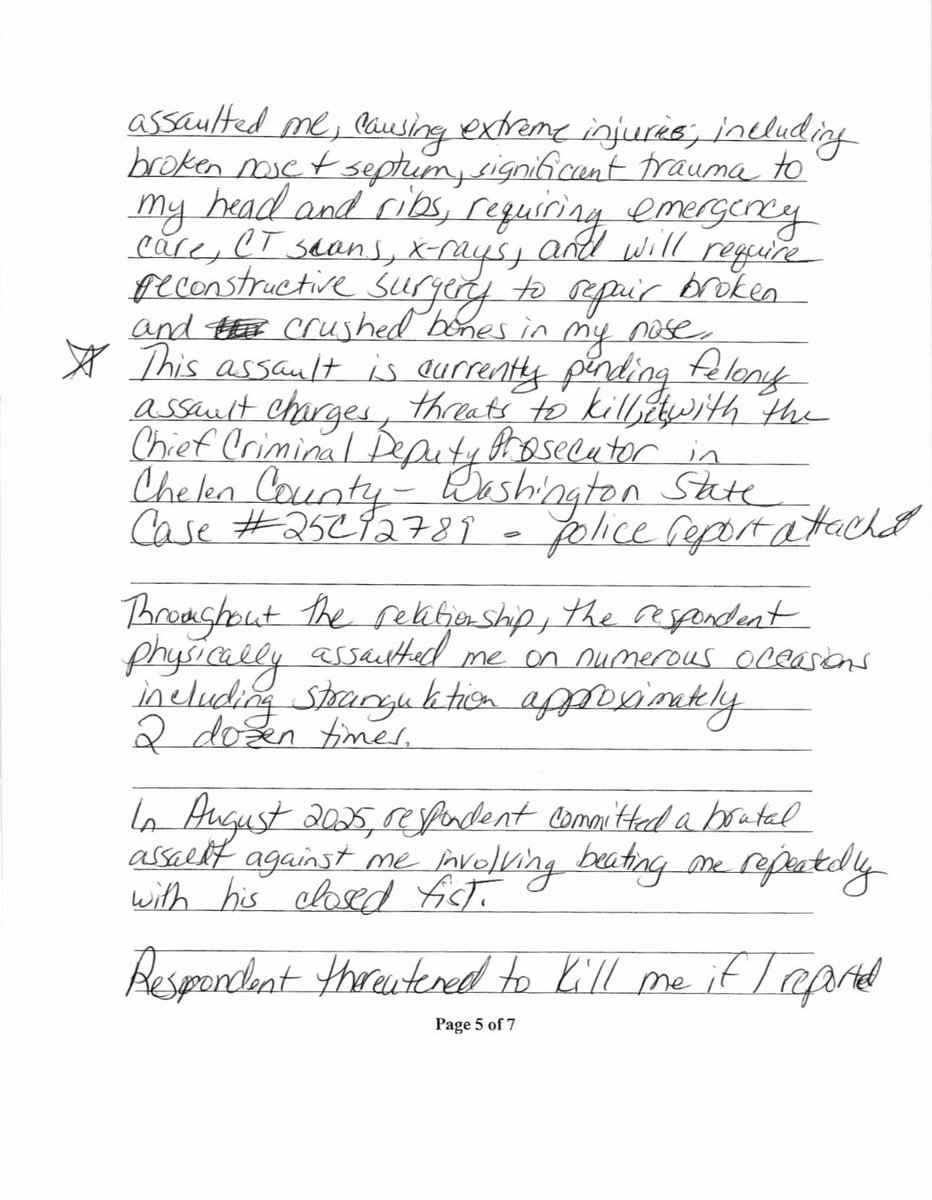 assaulted me, causing extreme injuries, including
broken nose + septum, significant trauma to
my head and ribs, requiring emergency
care, CT scans, x-rays, and will require
reconstructive surgery to repair broken
and crushed bones in my nose.
This assault is currently pending felony
assault charges, threats to kill, etc, with the
Chief Criminal Deputy Prosecutor in
Chelen County - Washington State
Case #25C12789 - police report attached
Throughout the relationship, the respondent
physically assaulted me on numerous occasions
including strangulation approximately
2 dozen times.
In August 2025, respondent committed a brutal
assault against me involving beating me repeatedly
with his closed fist.
Respondent threatened to kill me if I reported
Page 5 of 7